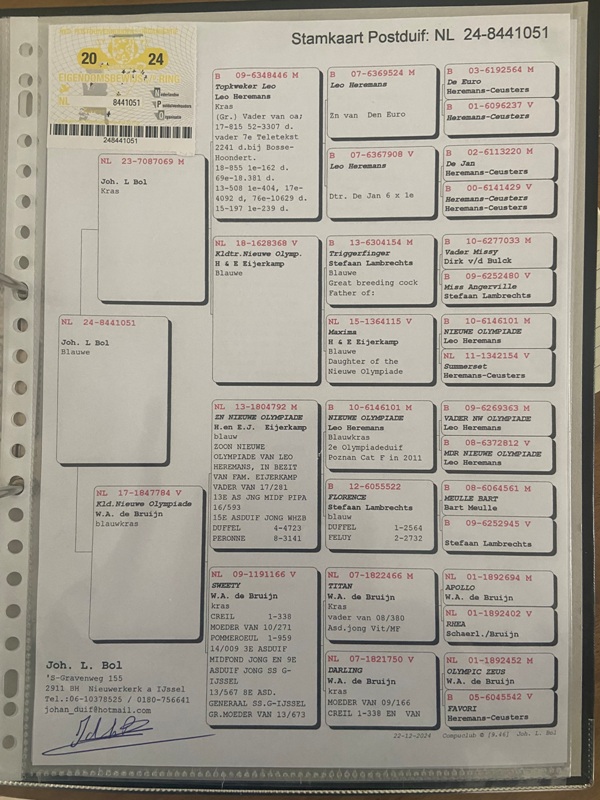 Stamkaart Postduif: NL 24-8441051
20 24
EIGENDOMSBEWIJS/RING
NL 8441051
248441051
NL 23-7087069 M
Joh. L Bol
Kras
NL 24-8441051
Joh. L Bol
Blauwe
NL 17-1847784 V
Kld.Nieuwe Olympiade
W.A. de Bruijn
blauwkras
B 09-6348446 M
Topkweker Leo
Leo Heremans
Kras
(Gr.) Vader van oa;
17-815 52-3307 d.
vader 7e Teletekst
2241 d.bij Bosse-
Hoondert.
18-855 1e-162 d.
69e-18.381 d.
13-508 1e-404, 17e-
4092 d, 76e-10629 d.
15-197 1e-239 d.
NL 18-1628368 V
Kldtr.Nieuwe Olymp.
H & E Eijerkamp
Blauwe
NL 13-1804792 M
ZN NIEUWE OLYMPIADE
H.en E.J. Eijerkamp
blauw
ZOON NIEUWE
OLYMPIADE VAN LEO
HEREMANS, IN BEZIT
VAN FAM. EIJERKAMP
VADER VAN 17/281
13E AS JNG MIDF PIPA
16/593
15E ASDUIF JONG WHZB
DUFFEL 4-4723
PERONNE 8-3141
NL 09-1191166 V
SWEETY
W.A. de Bruijn
kras
CREIL 1-338
MOEDER VAN 10/271
POMMEROEUL 1-959
14/009 3E ASDUIF
MIDFOND JONG EN 9E
ASDUIF JONG SS G-
IJSSEL
13/567 8E ASD.
GENERAAL SS.G-IJSSEL
GR.MOEDER VAN 13/673
B 07-6369524 M
Leo Heremans
Zn van Den Euro
B 07-6367908 V
Leo Heremans
Dtr. De Jan 6 x 1e
B 13-6304154 M
Triggerfinger
Stefaan Lambrechts
Blauwe
Great breeding cock
Father of:
NL 15-1364115 V
Maxima
H & E Eijerkamp
Blauwe
Daughter of the
Nieuwe Olympiade
B 10-6146101 M
NIEUWE OLYMPIADE
Leo Heremans
Blauwkras
2e Olympiadeduif
Poznan Cat F in 2011
B 12-6055522
FLORENCE
Stefaan Lambrechts
blauw
DUFFEL 1-2564
FELUY 2-2732
NL 07-1822466 M
TITAN
W.A. de Bruijn
Kras
vader van 08/380
Asd.jong Vit/MF
NL 07-1821750 V
DARLING
W.A. de Bruijn
kras
MOEDER VAN 09/166
CREIL 1-338 EN VAN
B 03-6192564 M
De Euro
Heremans-Ceusters
B 01-6096237 V
Heremans-Ceusters
B 02-6113220 M
De Jan
Heremans-Ceusters
B 00-6141429 V
Heremans-Ceusters
Heremans-Ceusters
B 10-6277033 M
Vader Missy
Dirk v/d Bulck
B 09-6252480 V
Miss Angerville
Stefaan Lambrechts
B 10-6146101 M
NIEUWE OLYMPIADE
Leo Heremans
NL 11-1342154 V
Summerset
Heremans-Ceusters
B 09-6269363 M
VADER NW OLYMPIADE
Leo Heremans
B 08-6372812 V
MDR NIEUWE OLYMPIADE
Leo Heremans
B 08-6064561 M
MEULLE BART
Bart Meulle
B 09-6252945 V
Stefaan Lambrechts
NL 01-1892694 M
APOLLO
W.A. de Bruijn
NL 01-1892402 V
RHEA
Schaerl./Bruijn
NL 01-1892452 M
OLYMPIC ZEUS
W.A. de Bruijn
B 05-6045542 V
FAVORI
Heremans-Ceusters
Joh. L. Bol
'S-Gravenweg 155
2911 BH Nieuwerkerk a IJssel
Tel.:06-10378525 / 0180-756641
johan_duif@hotmail.com
22-12-2024 Compuclub © [9.46] Joh. L. Bol